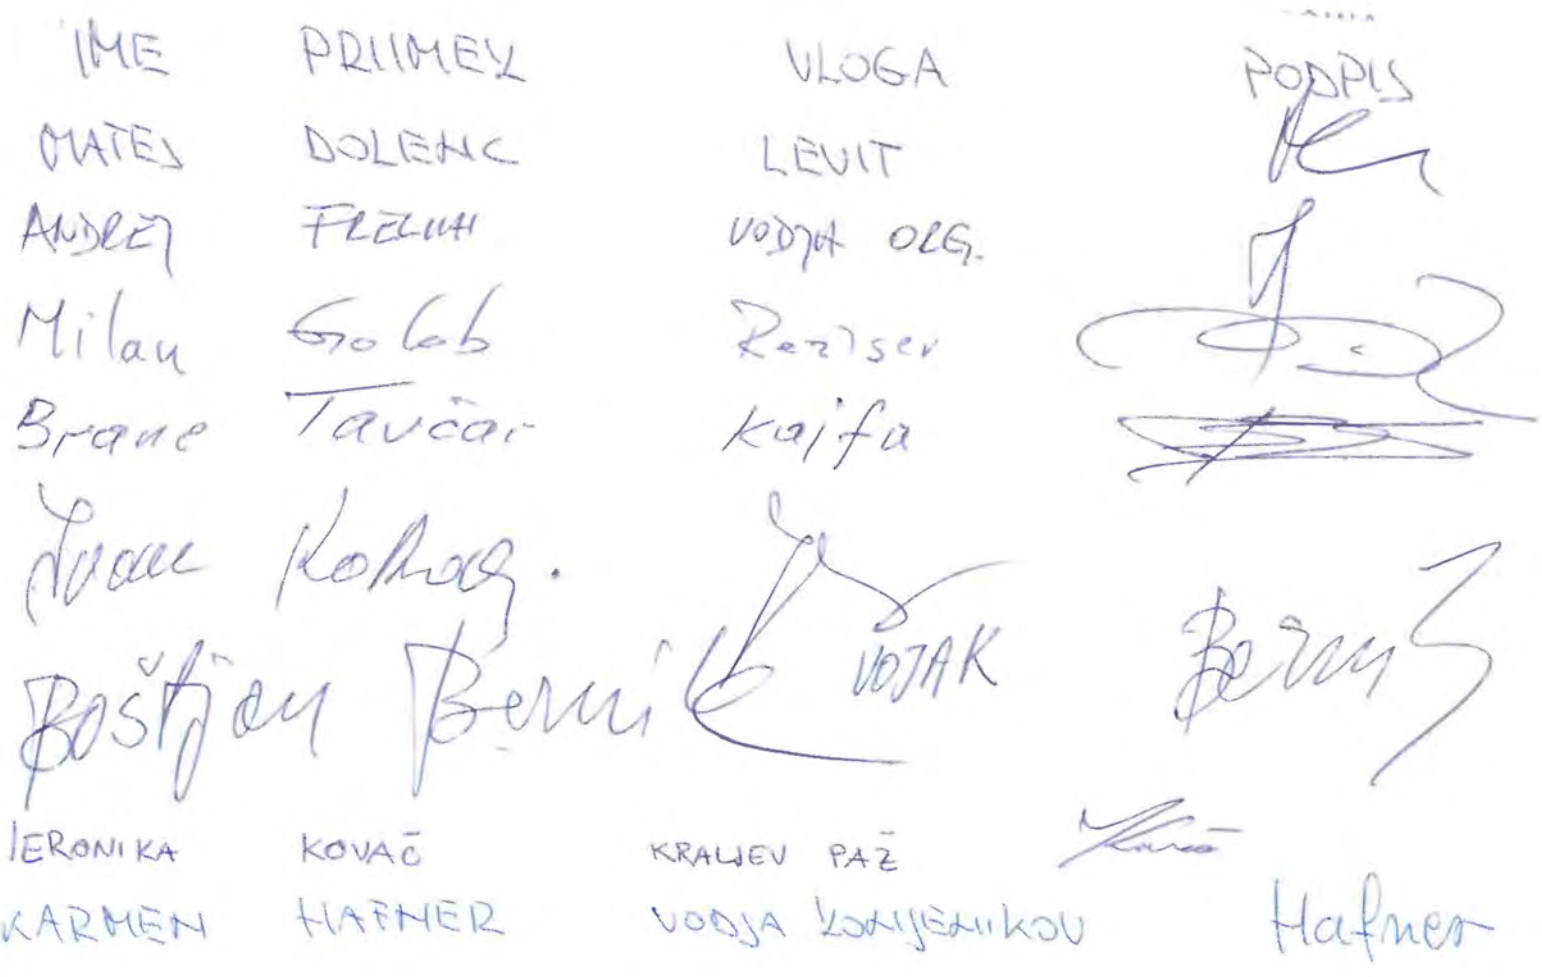 IME PRIIMEK VLOGA PODPIS
MATEJ DOLENC LEVIT
ANDREJ VODJA ORG.
Milan Golob Režiser
Brane Tavčar Kajfa
Ivan
Boštjan Bernik VOJAK Bernik
IERONIKA KOVAČ KRALJEV PAŽ Kovač
KARMEN HAFNER VODJA KONJENIKOV Hafner